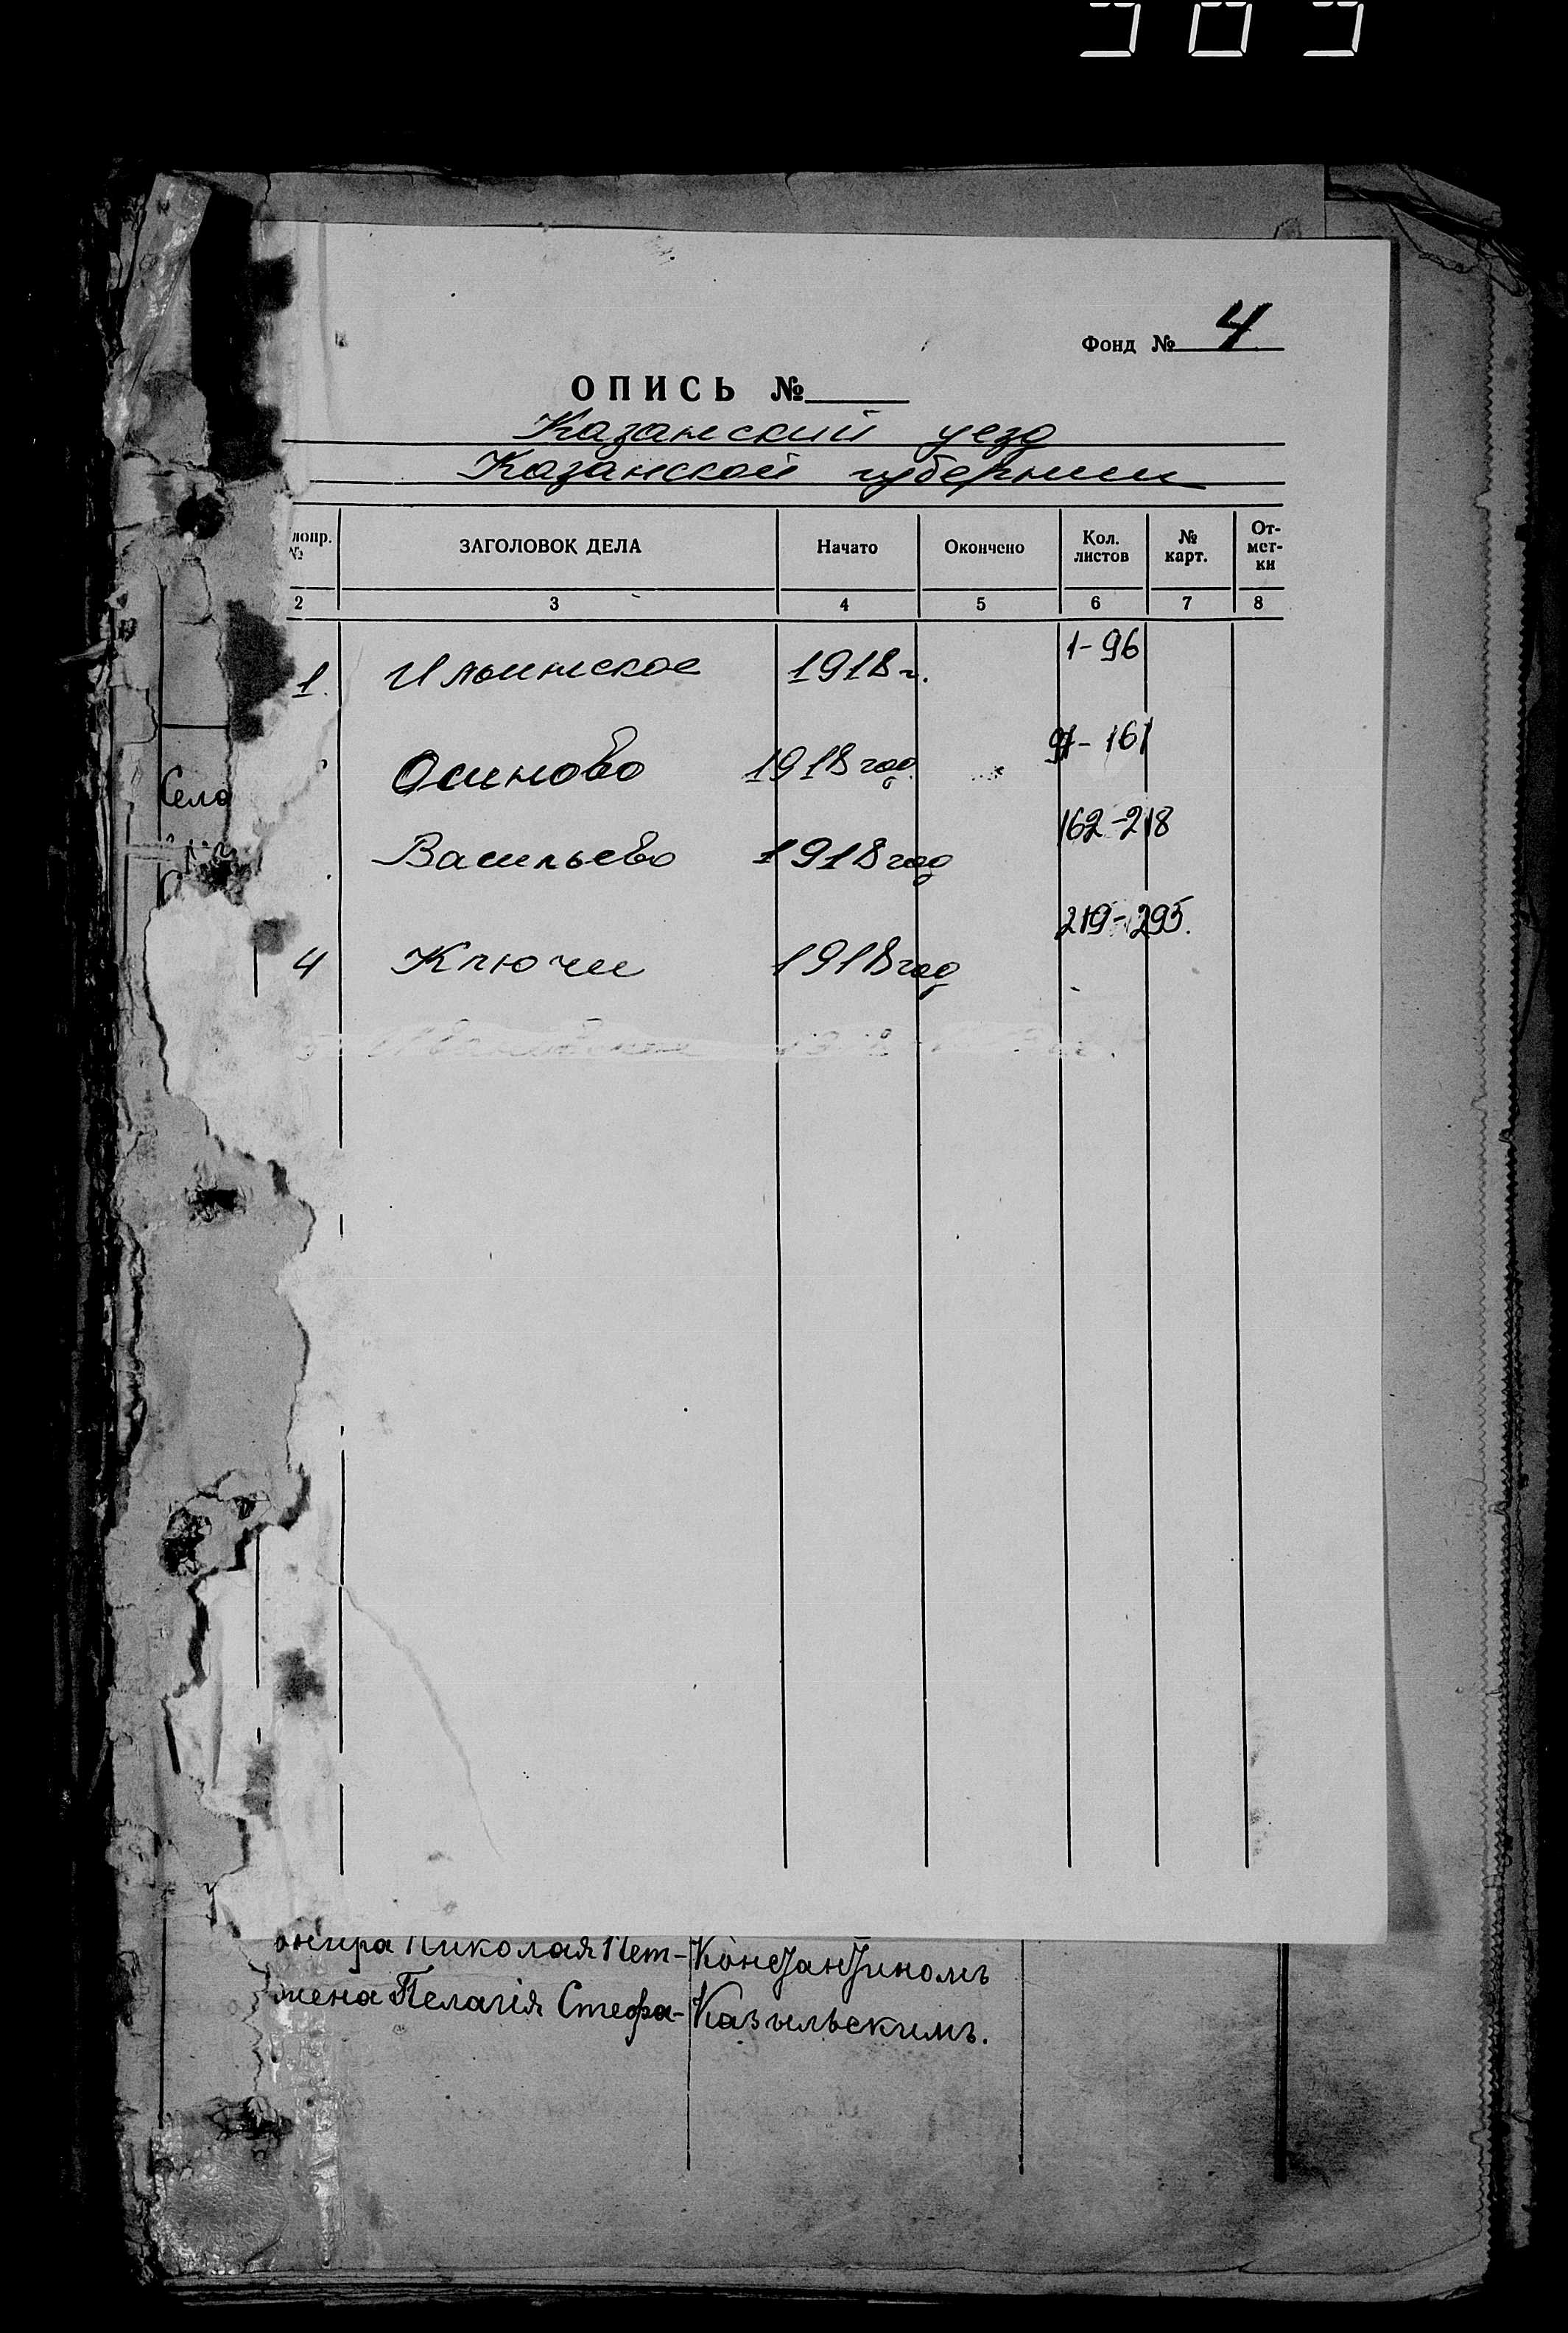 Фонд № 4
ОПИСЬ №
Казанский уезд
Казанской губернии
попр. № ЗАГОЛОВОК ДЕЛА Начато Окончено Кол. листов № карт. От-мет-ки
2 3 4 5 6 7 8
1. Ильинское 1918 г. 1-96
Осиново 1918 год 97-161
Васильево 1918 год 162-218
4 Ключи 1918 год 219-295.
Село
Николая Пет- Константиномъ
жена Пелагія Стефа- Казыльскимъ.